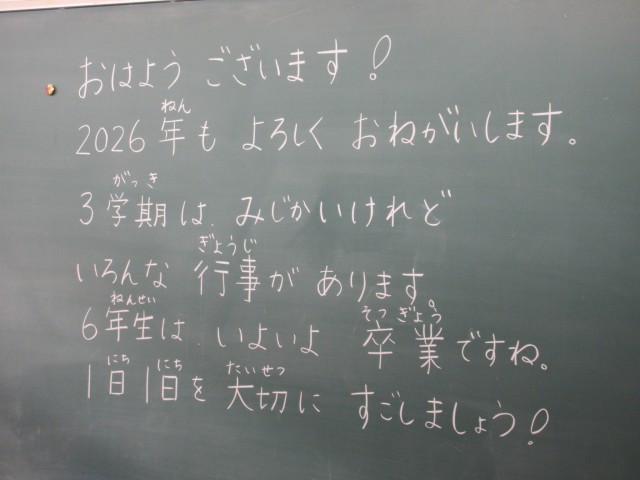 おはよう ございます!
ねん
2026年も よろしく おねがいします。
がっき
3学期は、みじかいけれど
ぎょうじ
いろんな 行事が あります。
ねんせい そつぎょう
6年生は、いよいよ 卒業ですね。
にち にち たいせつ
1日1日を 大切に すごしましょう!